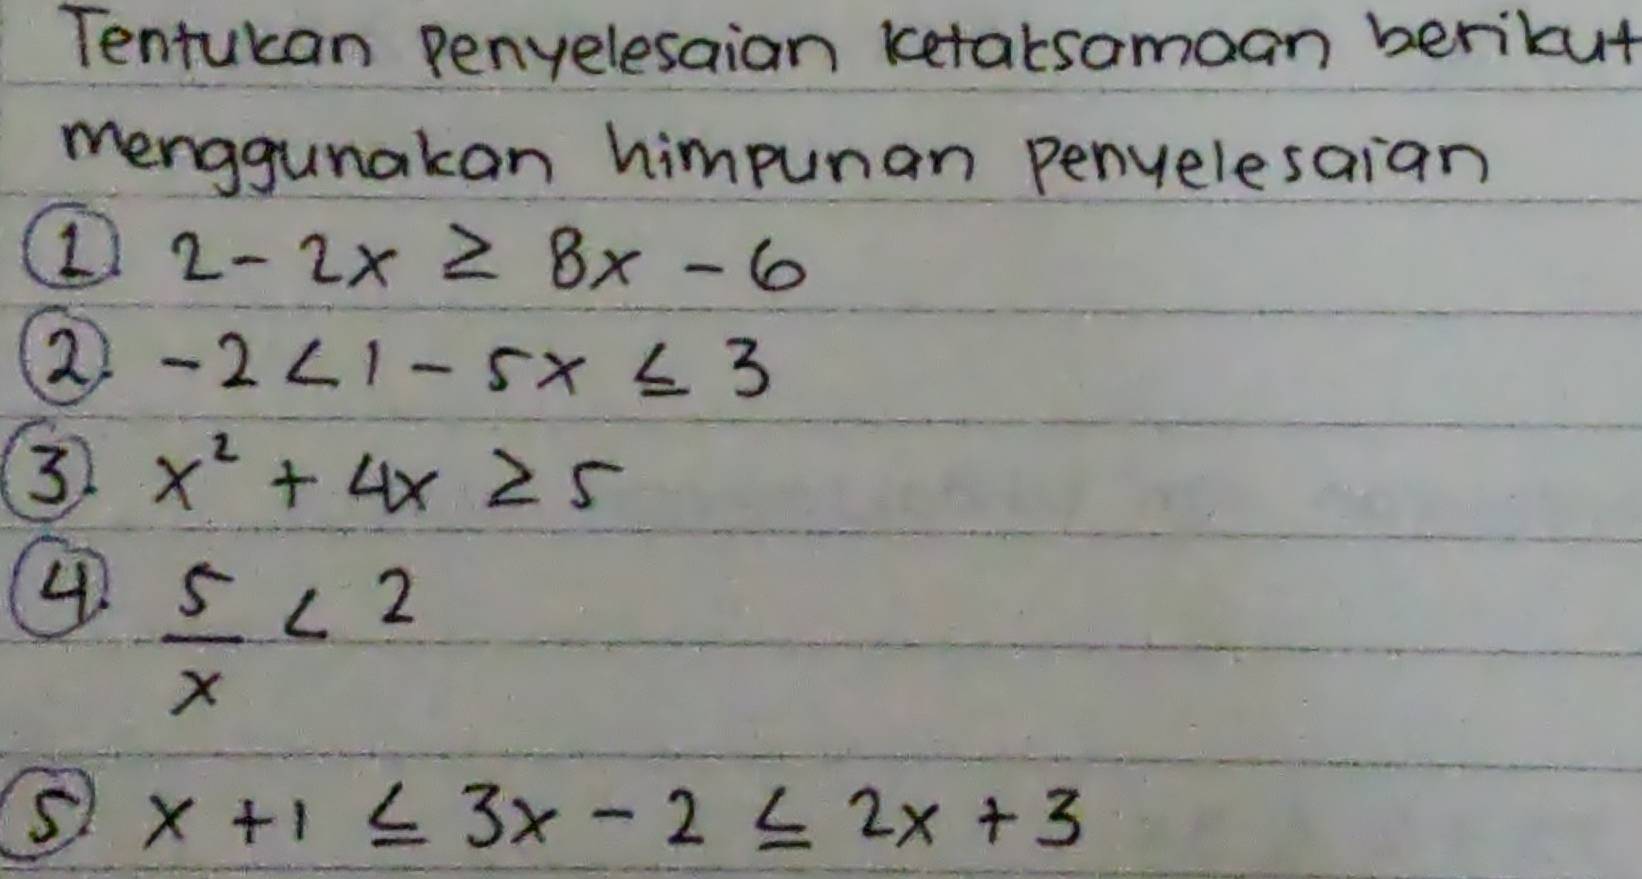 Tentukan penyelesaian ketaksamaan berikut
menggunakan himpunan penyelesaian
1. 2 - 2x ≥ 8x - 6
2. -2 < 1 - 5x ≤ 3
3. x² + 4x ≥ 5
4. 5/x < 2
5. x + 1 ≤ 3x - 2 ≤ 2x + 3